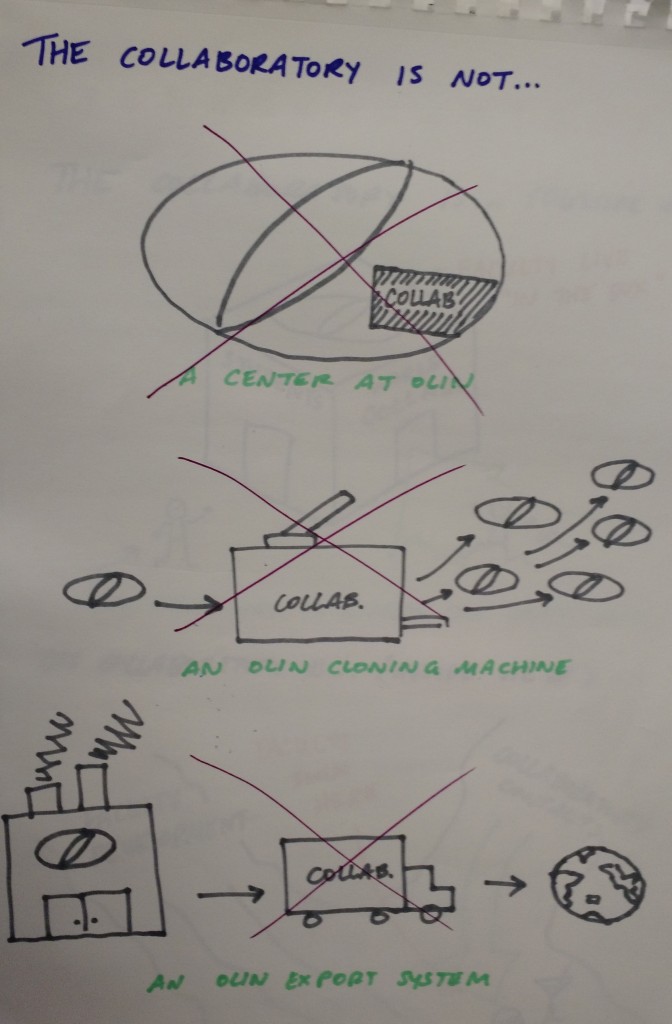 THE COLLABORATORY IS NOT...
COLLAB.
A CENTER AT OLIN
COLLAB.
AN OLIN CLONING MACHINE
COLLAB.
AN OLIN EXPORT SYSTEM